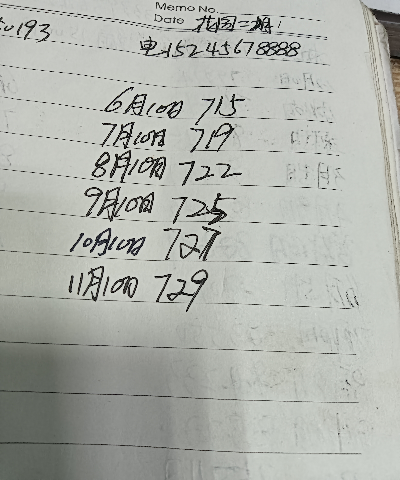 Memo No.
Date 花园二期
193
电15245678888
6月10日 715
7月10日 719
8月10日 722
9月10日 725
10月10日 727
11月10日 729